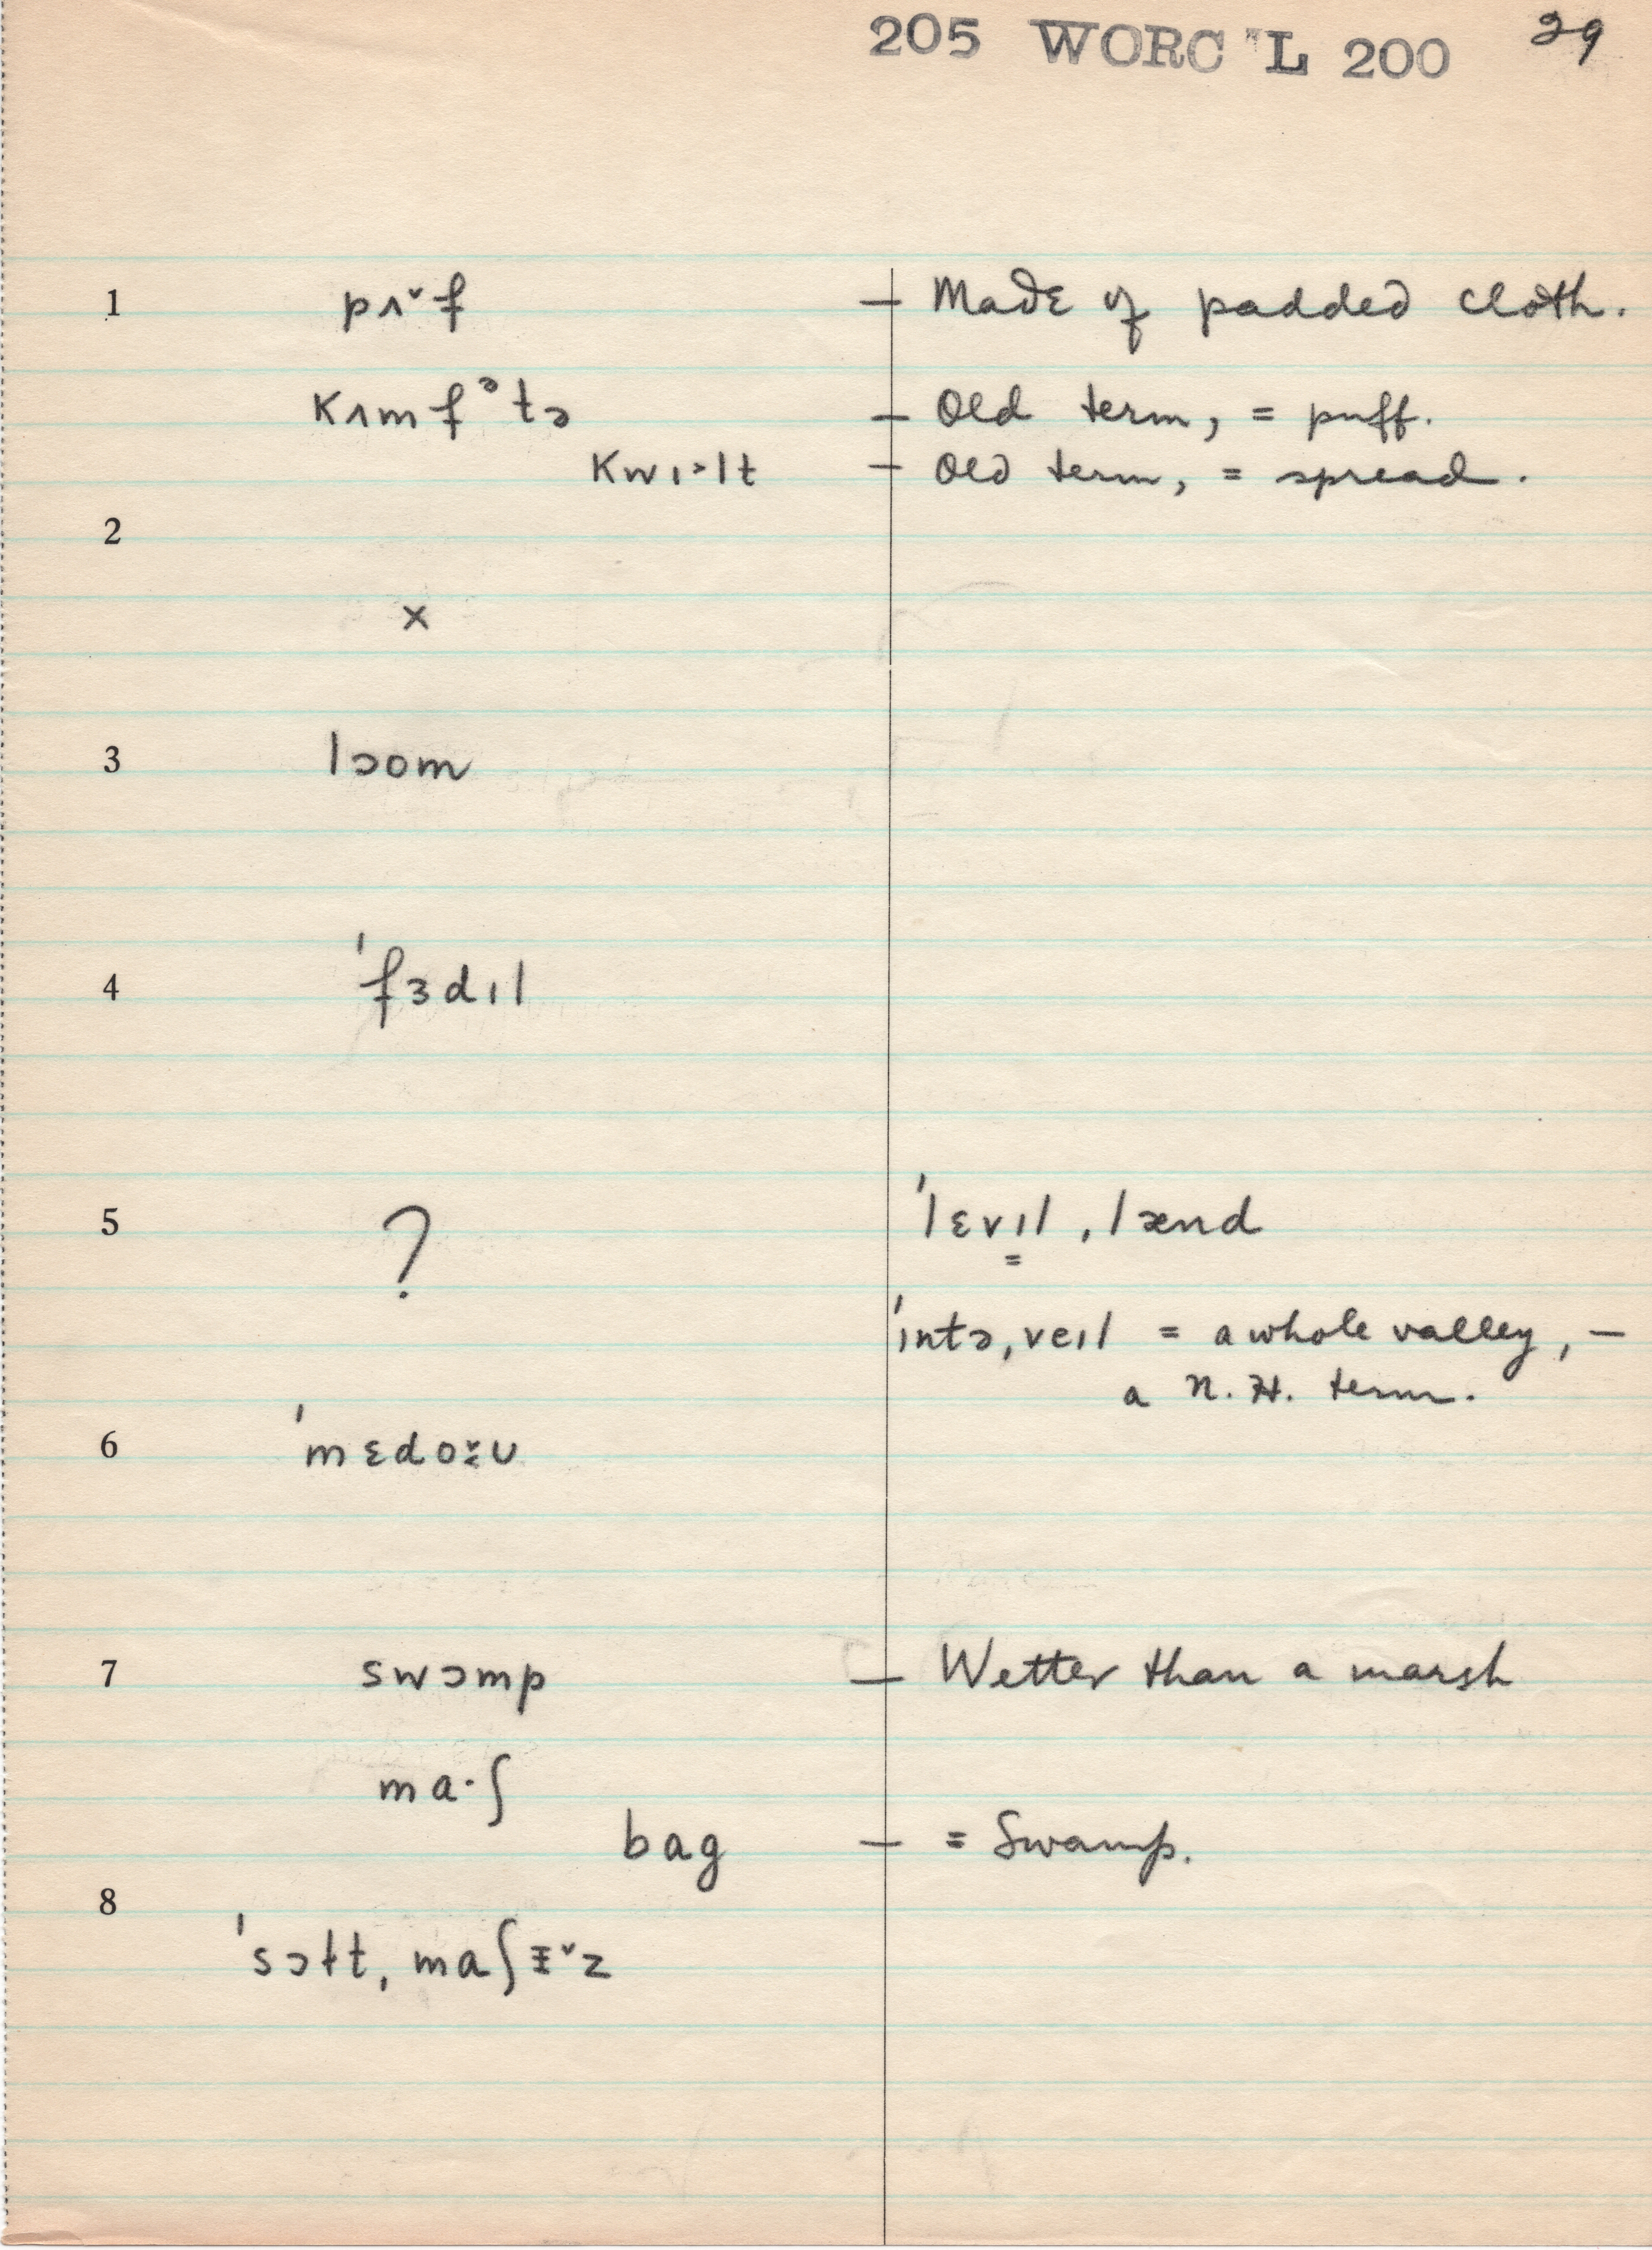 205 WORC "L 200 29
1 pʌ˅f — Made of padded cloth.
kʌmfᵊtə — Old term, = puff.
kwɪ˃lt — Old term, = spread.
2
×
3 lɔom
4 ˈfɜdɪl
5 ? ˈlɛvɪl ˌlænd
=
ˈɪntəˌveɪl = a whole valley, —
a N. H. term.
6 ˈmɛdo˅ʊ
7 swɔmp — Wetter than a marsh
ma·ʃ
bag — = Swamp.
8
ˈsɔɫtˌmaʃɪ˅z